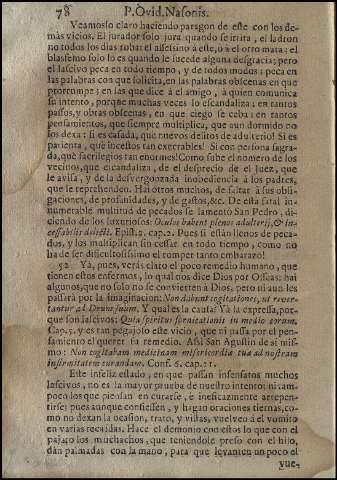 78 P. Ovid. Nasonis.
Veamoslo claro haciendo paragon de este con los de-
màs vicios. El jurador solo jura quando se irrita, el ladron
no todos los dias roba: el assessino à este, ò à el otro mata: el
blasfemo solo lo es quando le sucede alguna desgracia; pero
el lascivo peca en todo tiempo, y de todos modos; peca en
las palabras con que solicita, en las palabras obscenas en que
prorrumpe; en las que dice à el amigo, à quien comunica
su intento, porque muchas veces lo escandaliza; en tantos
passos, y obras obscenas, en que ciego se ceba; en tantos
pensamientos, que siempre multiplica, que aun dormido no
los dexa: si es casada, què nuevos delitos de adulterio! Si es
parienta, què incestos tan execrables! Si con persona sagra-
da, què sacrilegios tan enormes! Como sube el numero de los
vecinos, que escandaliza, de el desprecio de el Juez, que
le avisa, y de la desvergonzada inobediencia à los padres,
que le reprehenden. Hai otros muchos, de faltar à sus obli-
gaciones, de profanidades, y de gastos, &c. De esta fatal in-
numerable multitud de pecados se lamentò San Pedro, di-
ciendo de los luxuriosos: Oculos habent plenos adulterij, & in-
cessabilis delicti. Epist. 2. cap. 2. Pues si estàn llenos de peca-
dos, y los multiplican sin cessar en todo tiempo, como no
ha de ser dificultosissimo el romper tanto embarazo!
52 Yà, pues, veràs claro el poco remedio humano, que
tienen estos enfermos, lo qual nos dice Dios por Oseas: hai
algunos, que no solo no se convierten à Dios, pero ni aun les
passarà por la imaginacion: Non dabunt cogitationes, ut rever-
tantur ad Deum suum. Y qual es la causa? Yà la expressa, por-
que son lascivos: Quia spiritus fornicationis in medio eorum.
Cap. 5. y es tan pegajoso este vicio, que ni passa por el pen-
samiento el querer su remedio. Assi San Agustin de sì mis-
mo: Non cogitabam meditnam misericordia tua ad nostram
infirmitatem curandam. Conf. 6. cap. 11.
Este infeliz estado, en que passan insensatos muchos
lascivos, no es la mayor prueba de nuestro intento; ni tam-
poco los que piensan en curarse, è ineficazmente arrepen-
tirse; pues aunque confiessen, y hagan oraciones tiernas, co-
mo no dexan la ocasion, trato, y visitas, vuelven à el vomito
en varias recaidas. Hace el demonio con estos lo que con el
pajaro los muchachos, que teniendole preso con el hilo,
dàn palmadas con la mano, para que levanten un poco el
vue-